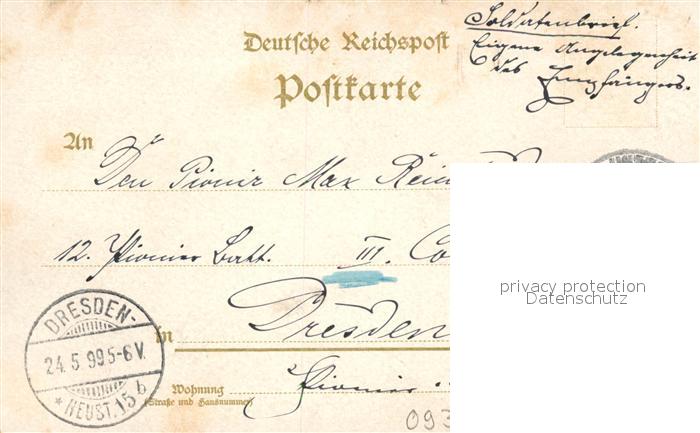 Soldatenbrief.
Eigene Angelegenheit
des Empfängers.
Deutsche Reichspost
Postkarte
An
Den Pionir Max
12. Pionier Batt. III.
in Dresden
Wohnung
(Straße und Hausnummer)
Pionier
DRESDEN-
24.5.99.5-6V.
* NEUST.15b
093
privacy protection
Datenschutz